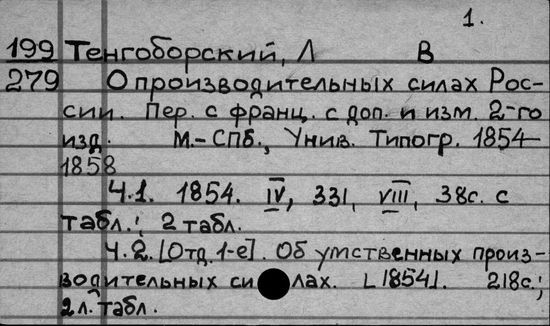 1.
199 Тенгоборский, Л В
279 О производительных силах Рос-
сии. Пер. с франц. с доп. и изм. 2-го
изд. М.-СПб., Унив. Типогр. 1854-
1858
Ч.1. 1854. IV, 331, VIII, 38с. с
табл.; 2 табл.
Ч.2. [Отд. 1-е]. Об умственных произ-
водительных силах. [1854]. 218с.;
2л. табл.